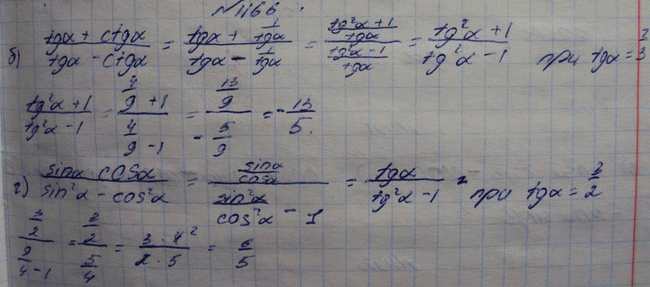 №1166.
б) (tgα + ctgα)/(tgα - ctgα) = (tgα + 1/tgα)/(tgα - 1/tgα) = ((tg²α+1)/tgα)/((tg²α-1)/tgα) = (tg²α+1)/(tg²α-1) при tgα = 2/3
(tg²α+1)/(tg²α-1) = (4/9 +1)/(4/9 -1) = (13/9)/(-5/9) = -13/5.
г) (sinα cosα)/(sin²α - cos²α) = (sinα/cosα)/(sin²α/cos²α - 1) = tgα/(tg²α-1) = при tgα = 3/2
(3/2)/(9/4 -1) = (3/2)/(5/4) = (3·4²)/(2·5) = 6/5